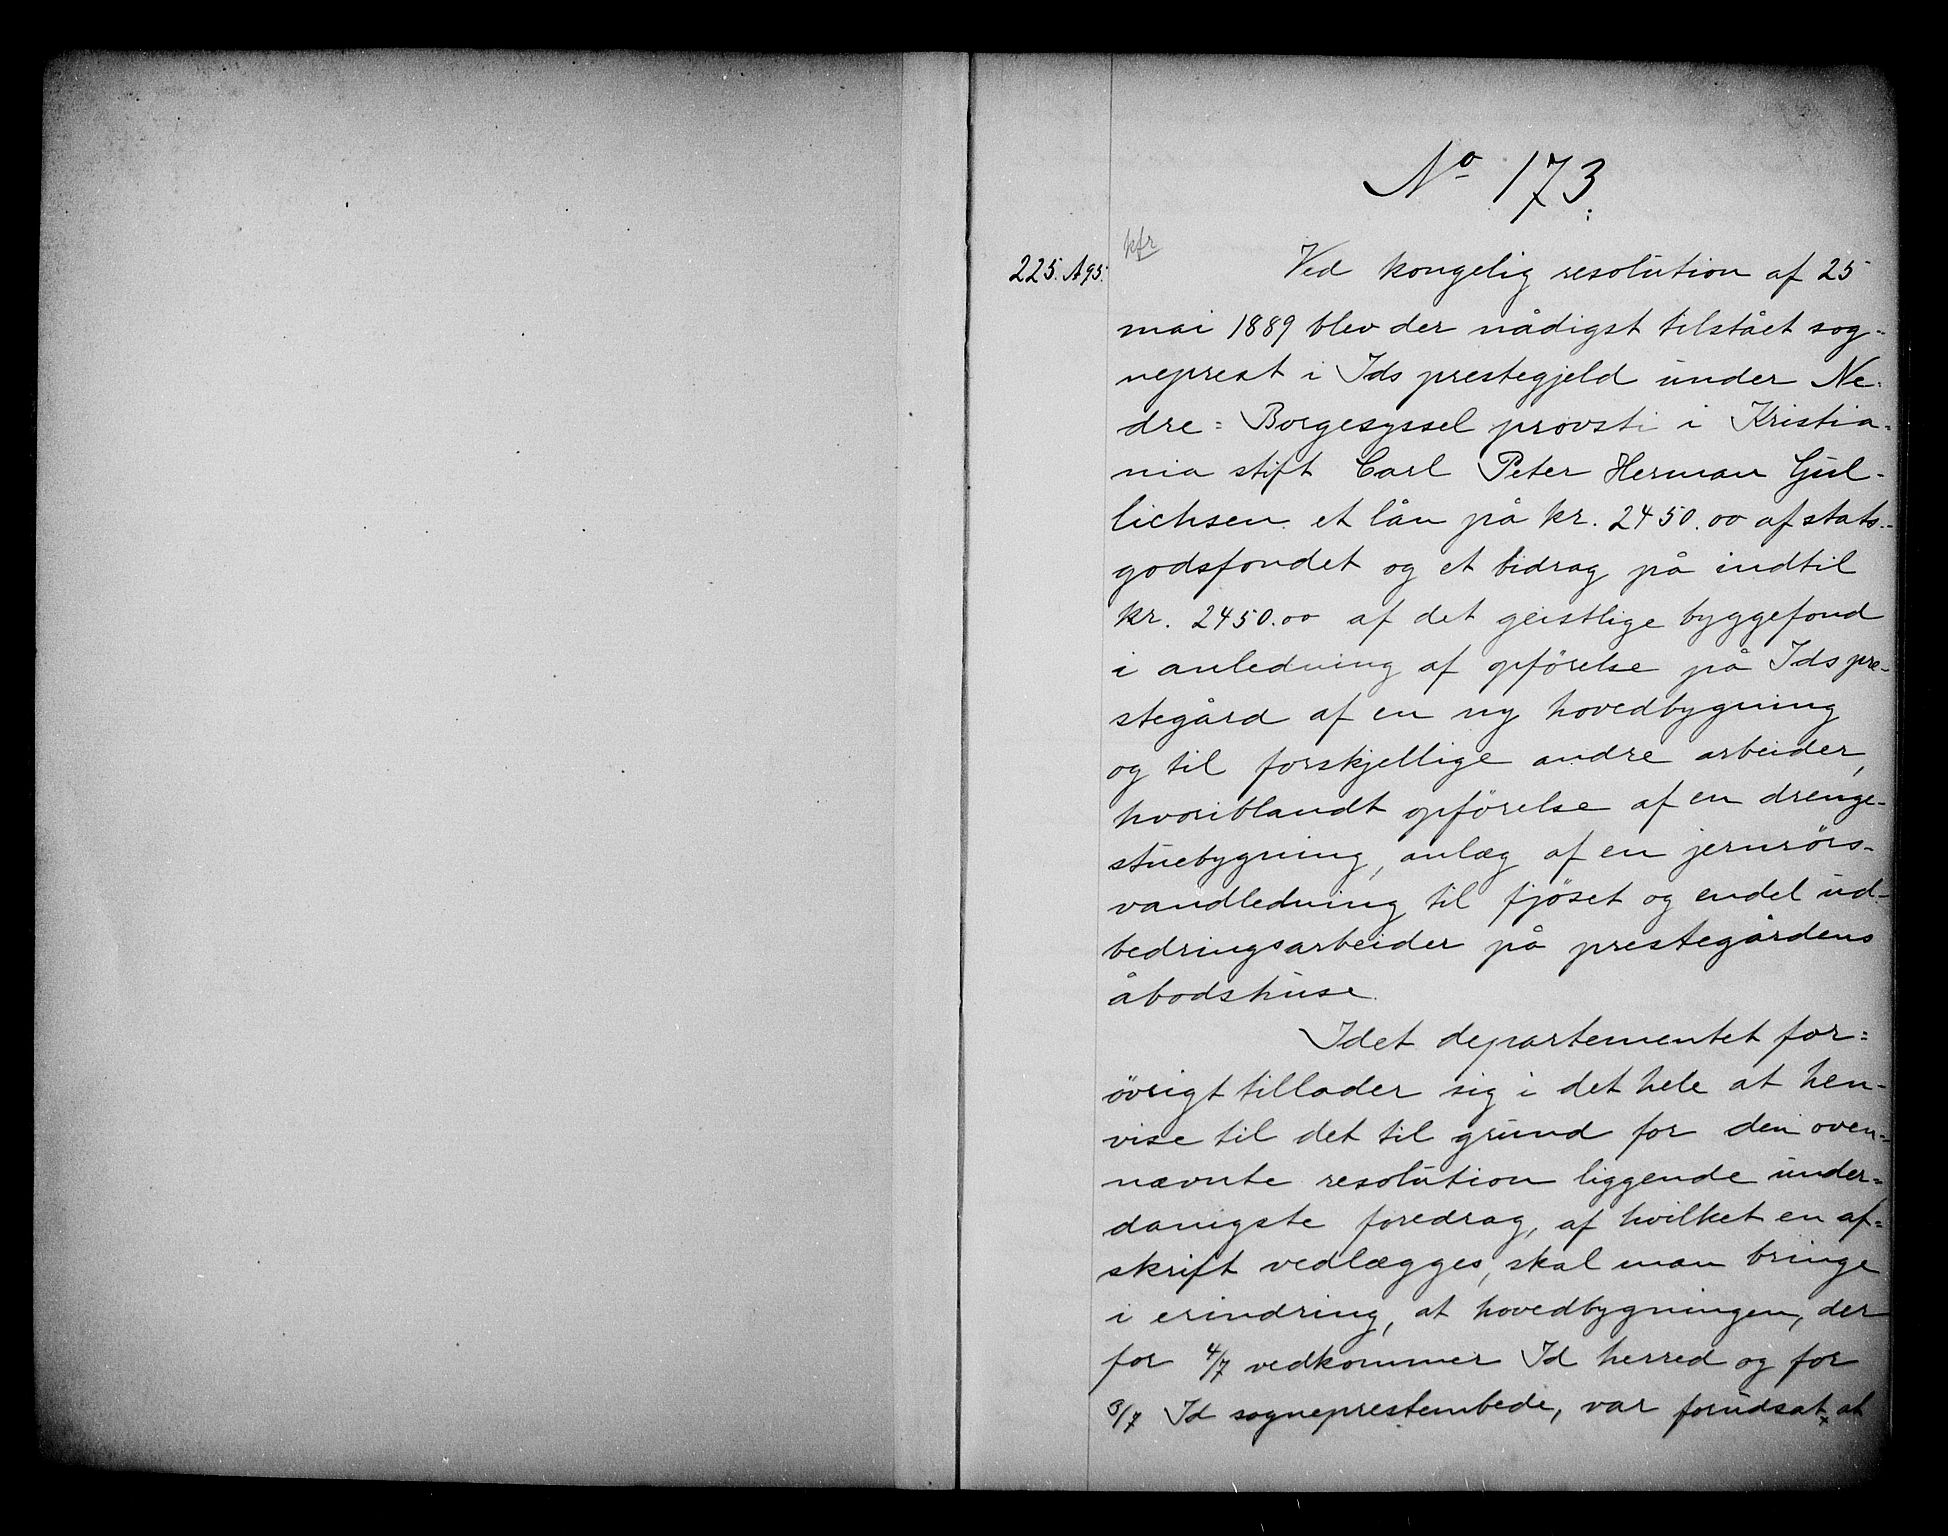 No 173.
kfr
225. A95.
Ved kongelig resolution af 25
mai 1889 blev der nådigst tilstået sog-
neprest i Ids prestegjeld under Ne-
dre = Borgesyssel provsti i Kristia-
nia stift Carl Peter Herman Gul-
lichsen et lån på kr. 2450.00 af stats-
godsfondet og et bidrag på indtil
kr. 2450.00 af det geistlige byggefond
i anledning af opförelse på Ids pre-
stegård af en ny hovedbygning
og til forskjellige andre arbeider,
hvoriblandt opförelse af en drenge-
stuebygning, anlæg af en jernrörs-
vandledning til fjöset og endel ud-
bedringsarbeider på prestegårdens
åbodshuse.
Idet departementet for=
övrigt tillader sig i det hele at hen-
vise til det til grund for den oven=
nævnte resolution liggende under=
danigste foredrag, af hvilket en af=
skrift vedlægges, skal man bringe
i erindring, at hovedbygningen, der
for 4/7 vedkommer Id herred og for
3/7 Id sogneprestembede, var forudsat, at